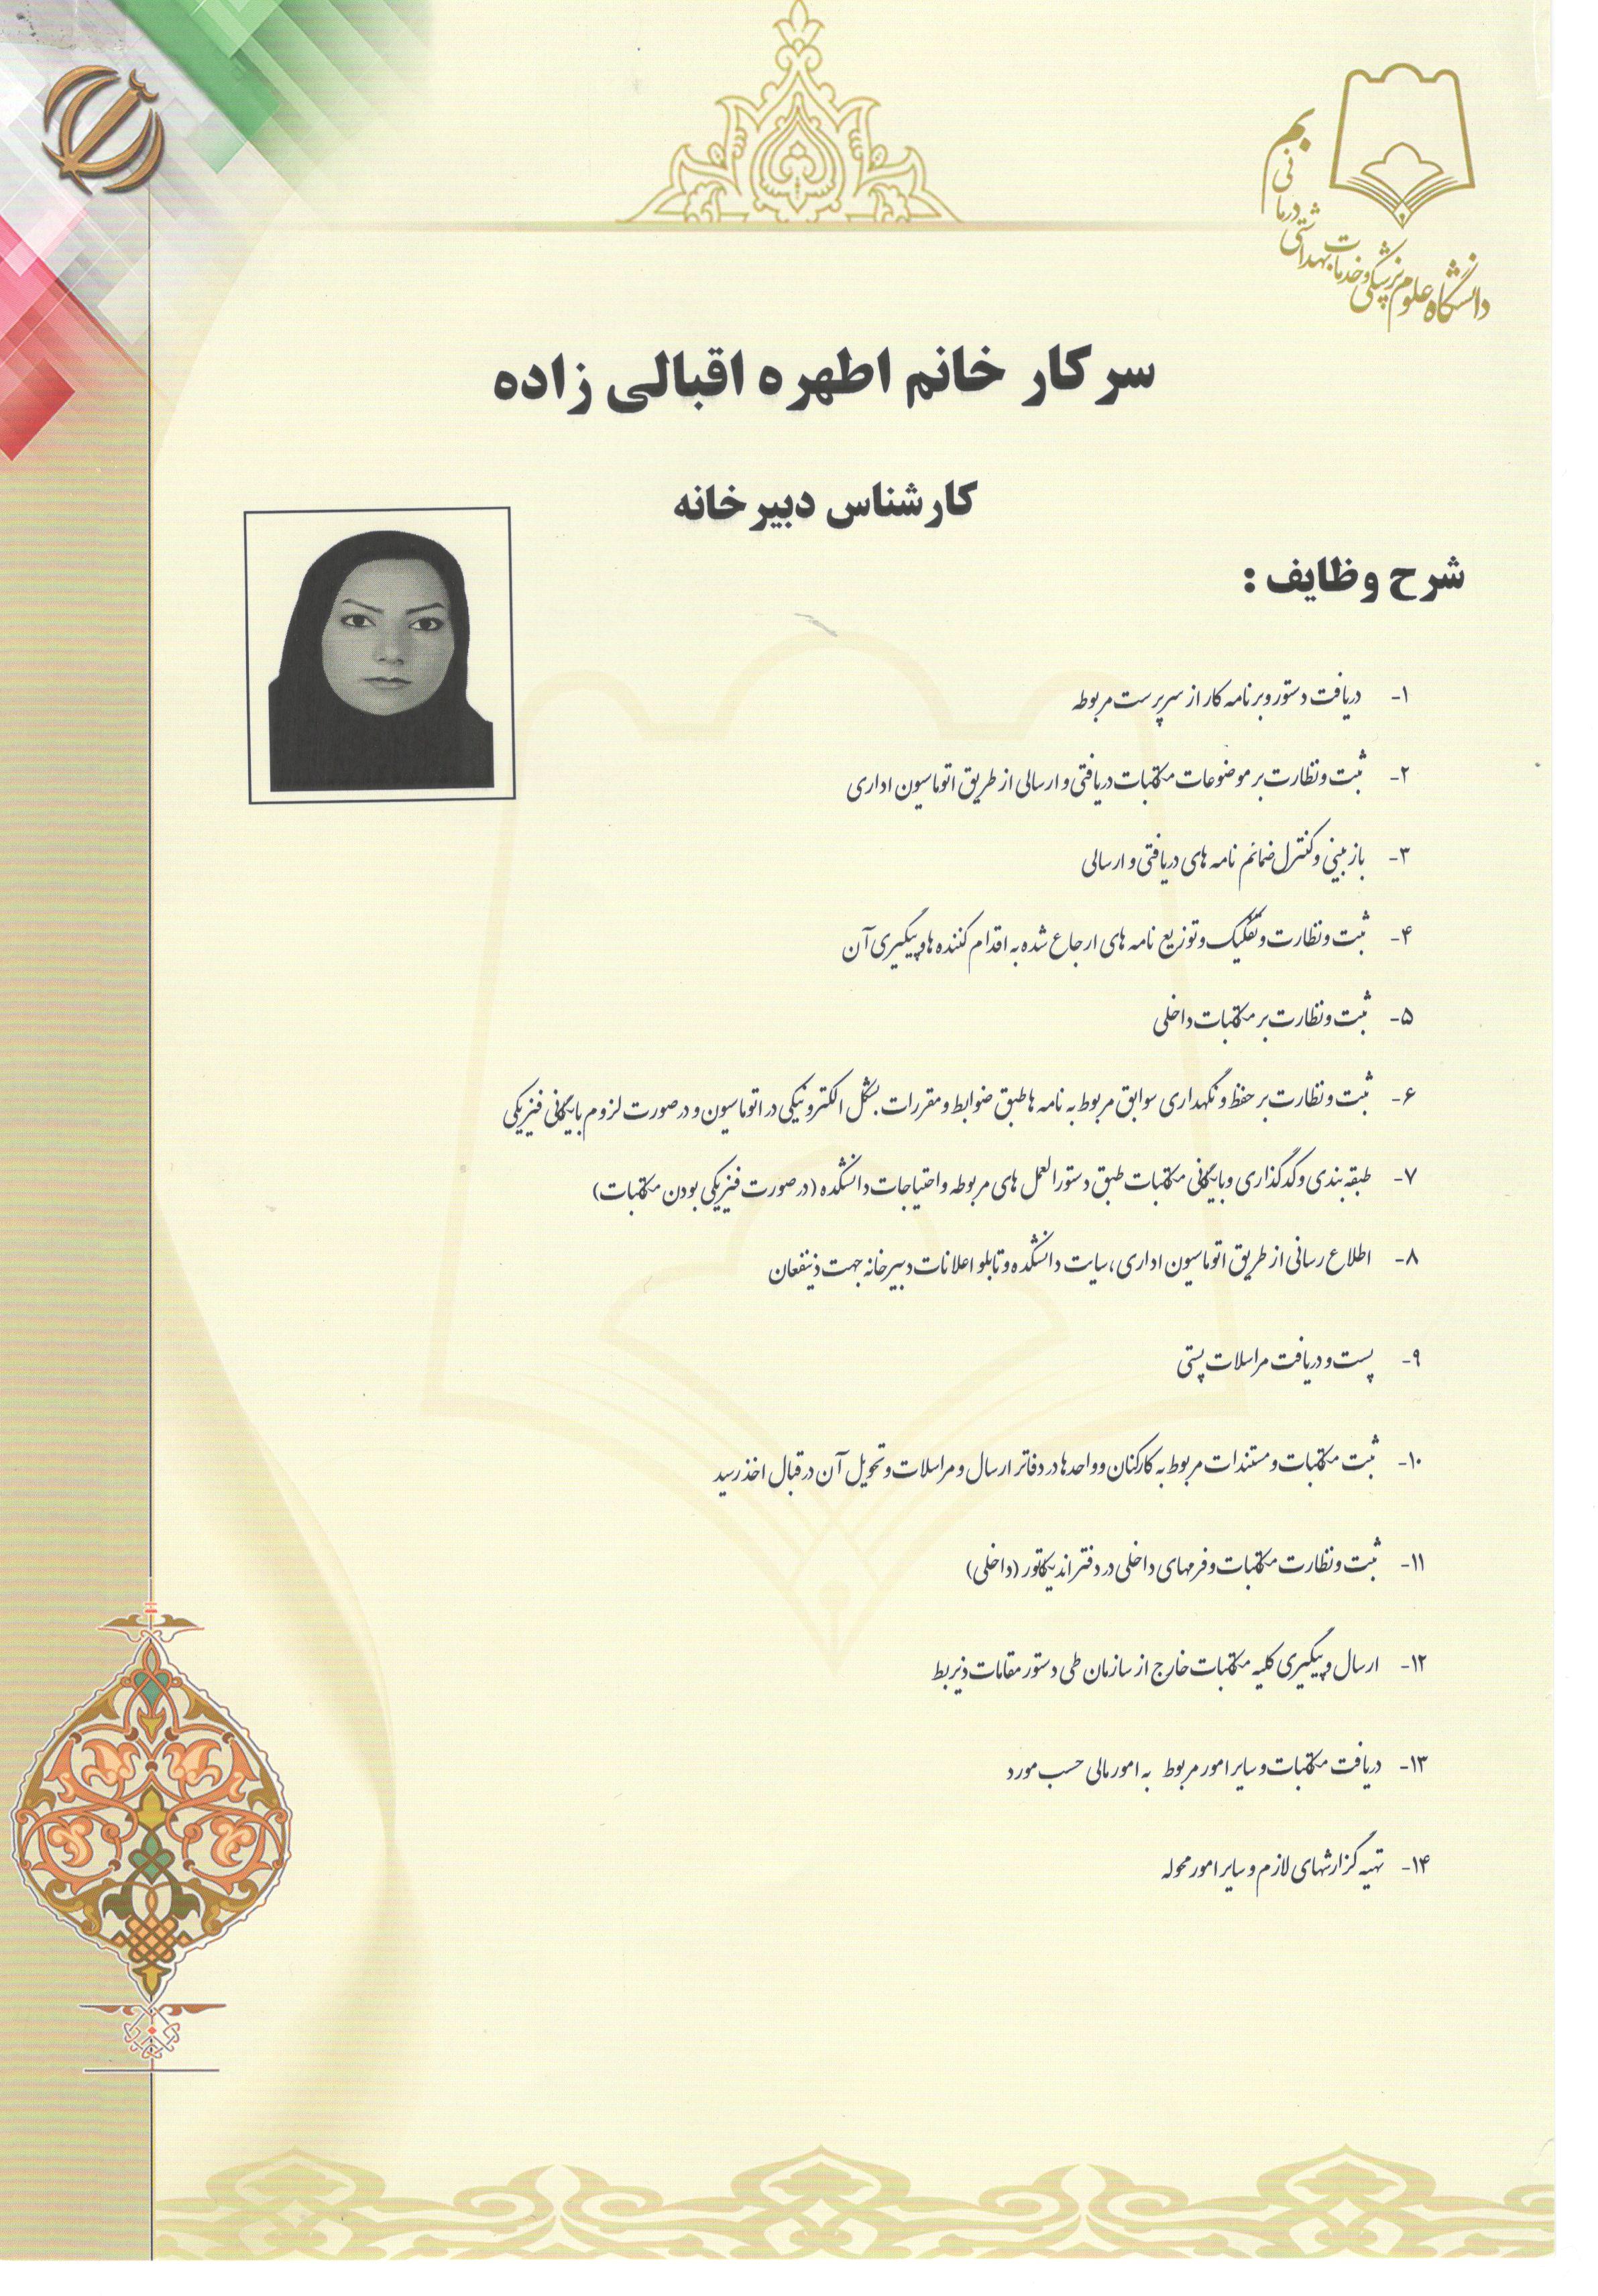 دانشگاه علوم پزشکی و خدمات بهداشتی درمانی بم
سرکار خانم اطهره اقبالی زاده
کارشناس دبیرخانه
شرح وظایف :
۱- دریافت دستور و برنامه کار از سرپرست مربوطه
۲- ثبت و نظارت بر موضوعات مکتبات دریافتی و ارسالی از طریق اتوماسیون اداری
۳- بازبینی و کنترل ضمائم نامه های دریافتی و ارسالی
۴- ثبت و نظارت و تفکیک و توزیع نامه های ارجاع شده به اقدام کننده ها و پیگیری آن
۵- ثبت و نظارت بر مکتبات داخلی
۶- ثبت و نظارت بر حفظ و نگهداری سوابق مربوط به نامه ها طبق ضوابط و مقررات بشکل الکترونیکی در اتوماسیون و در صورت لزوم بایگانی فیزیکی
۷- طبقه بندی و کدگذاری و بایگانی مکتبات طبق دستورالعمل های مربوطه و احتیاجات دانشکده (در صورت فیزیکی بودن مکتبات)
۸- اطلاع رسانی از طریق اتوماسیون اداری، سایت دانشکده و تابلو اعلانات دبیرخانه جهت ذینفعان
۹- پست و دریافت مراسلات پستی
۱۰- ثبت مکتبات و مستندات مربوط به کارکنان و واحدها در دفاتر ارسال و مراسلات و تحویل آن در قبال اخذ رسید
۱۱- ثبت و نظارت مکتبات و فرمهای داخلی در دفتر اندیکاتور (داخلی)
۱۲- ارسال و پیگیری کلیه مکتبات خارج از سازمان طی دستور مقامات ذیربط
۱۳- دریافت مکتبات و سایر امور مربوط به امور مالی حسب مورد
۱۴- تهیه گزارشهای لازم و سایر امور محوله